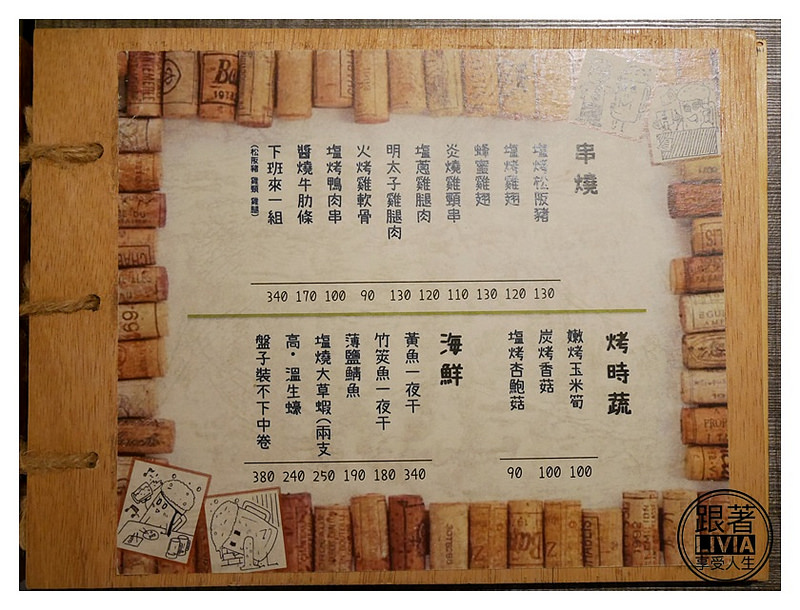 串燒
塩烤松阪豬 130
塩烤雞翅 120
蜂蜜雞翅 130
炎燒雞頸串 110
塩蔥雞腿肉 120
明太子雞腿肉 130
火烤雞軟骨 90
塩烤鴨肉串 100
醬燒牛肋條 170
下班來一組 340
(松阪豬 雞頸 雞腿)
烤時蔬
嫩烤玉米筍 100
炭烤香菇 100
塩烤杏鮑菇 90
海鮮
黃魚一夜干 340
竹筴魚一夜干 180
薄鹽鯖魚 190
塩燒大草蝦(兩支 250
高・溫生蠔 240
盤子裝不下中卷 380
跟著
LIVIA
享受人生